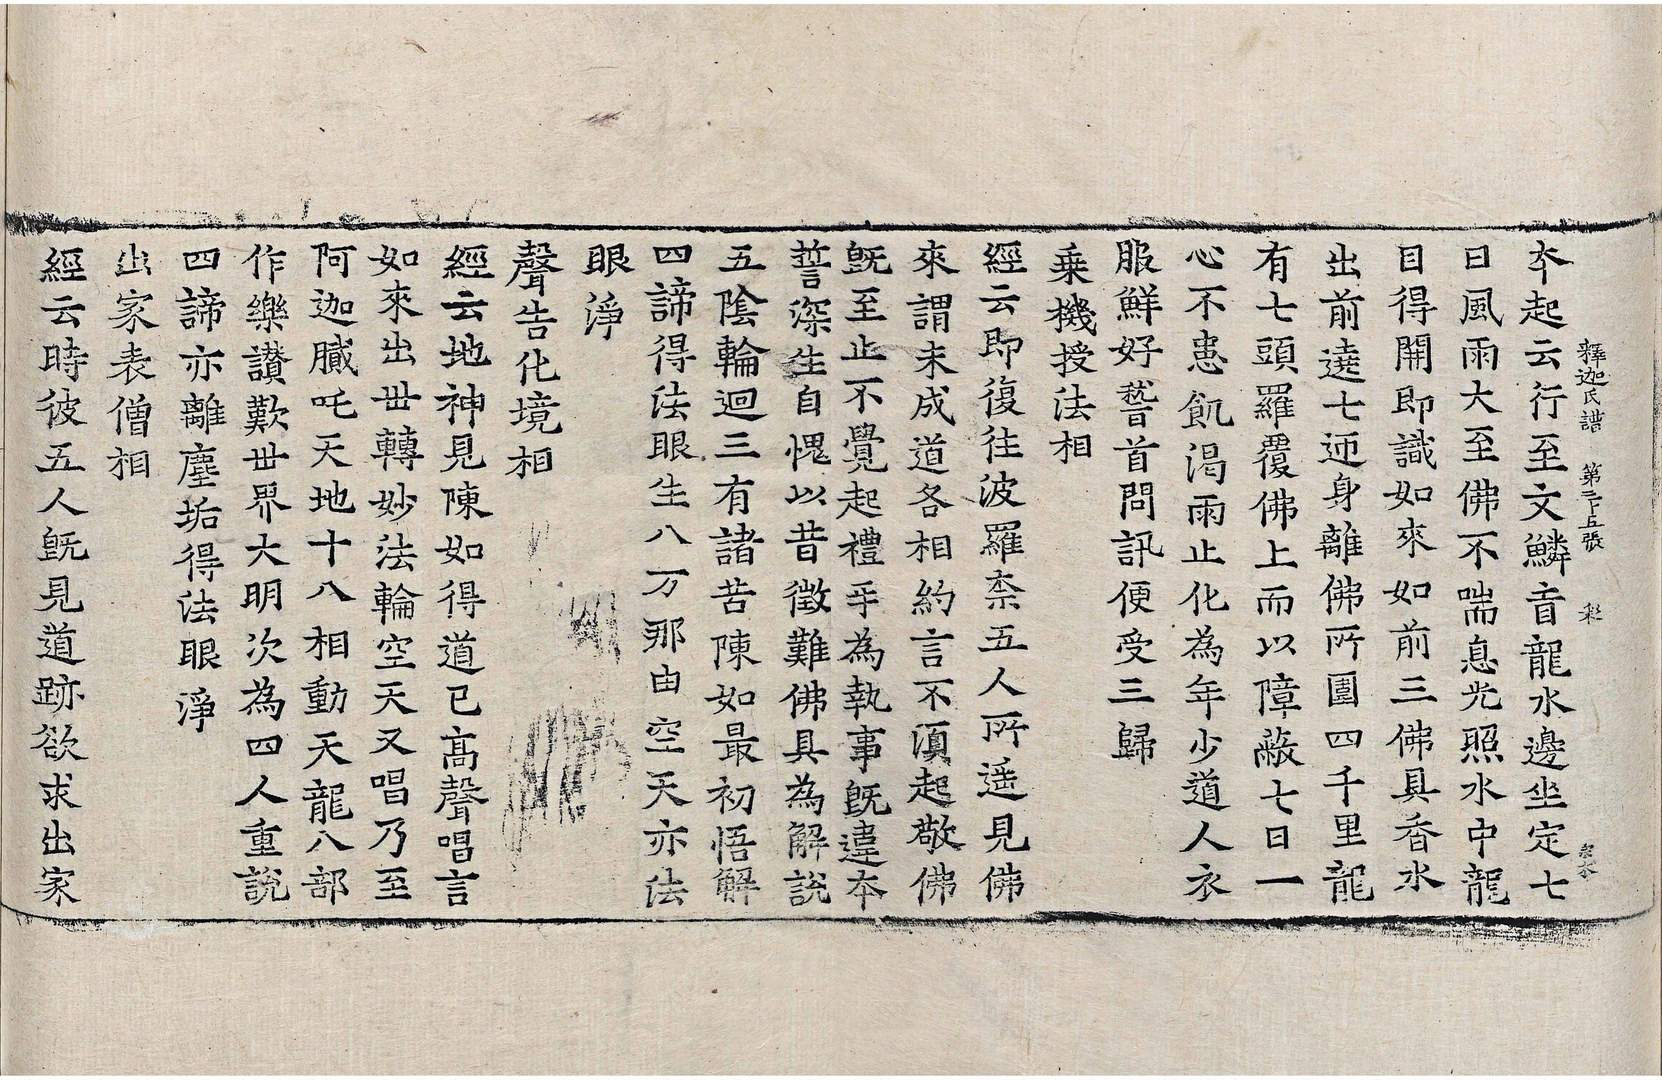 釋迦氏譜 第二十五張 彩
夲起云行至文鱗盲龍水邊坐定七
日風雨大至佛不喘息光照水中龍
目得開即識如來如前三佛具香水
出前遶七迊身離佛所圍四千里龍
有七頭羅覆佛上而以障蔽七日一
心不患飢渴雨止化為年少道人衣
服鮮好稽首問訊便受三歸
乗機授法相
經云即復往波羅柰五人所遥見佛
來謂未成道各相約言不湏起敬佛
旣至止不覺起禮乎為執事旣違夲
誓深生自愧以昔徵難佛具為解說
五陰輪迴三有諸苦陳如最初悟解
四諦得法眼生八万那由空天亦法
眼淨
聲告化境相
經云地神見陳如得道已髙聲唱言
如來出丗轉妙法輪空天又唱乃至
阿迦膩吒天地十八相動天龍八部
作樂讃歎丗界大明次為四人重說
四諦亦離塵垢得法眼淨
出家表僧相
經云時彼五人旣見道跡欲求出家